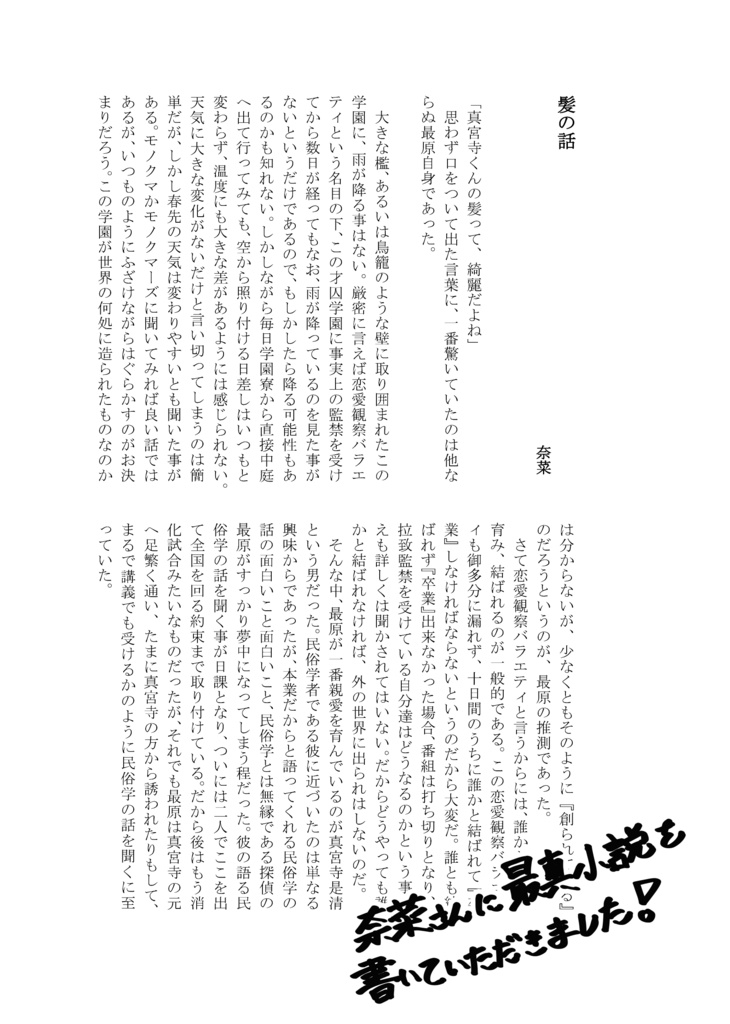 髪の話
奈菜
「真宮寺くんの髪って、綺麗だよね」
思わず口をついて出た言葉に、一番驚いていたのは他な
らぬ最原自身であった。
大きな檻、あるいは鳥籠のような壁に取り囲まれたこの
学園に、雨が降る事はない。厳密に言えば恋愛観察バラエ
ティという名目の下、この才囚学園に事実上の監禁を受け
てから数日が経ってもなお、雨が降っているのを見た事が
ないというだけであるので、もしかしたら降る可能性もあ
るのかも知れない。しかしながら毎日学園寮から直接中庭
へ出て行ってみても、空から照り付ける日差しはいつもと
変わらず、温度にも大きな差があるようには感じられない。
天気に大きな変化がないだけと言い切ってしまうのは簡
単だが、しかし春先の天気は変わりやすいとも聞いた事が
ある。モノクマかモノクマーズに聞いてみれば良い話では
あるが、いつものようにふざけながらはぐらかすのがお決
まりだろう。この学園が世界の何処に造られたものなのか
は分からないが、少なくともそのように『創られ る』
のだろうというのが、最原の推測であった。
さて恋愛観察バラエティと言うからには、誰か
育み、結ばれるのが一般的である。この恋愛観察バラエ
ィも御多分に漏れず、十日間のうちに誰かと結ばれて『
業』しなければならないというのだから大変だ。誰とも
ばれず『卒業』出来なかった場合、番組は打ち切りとなり、
拉致監禁を受けている自分達はどうなるのかという事
えも詳しくは聞かされてはいない。だからどうやっても誰
かと結ばれなければ、外の世界に出られはしないのだ。
そんな中、最原が一番親愛を育んでいるのが真宮寺是清
という男だった。民俗学者である彼に近づいたのは単なる
興味からであったが、本業だからと語ってくれる民俗学の
話の面白いこと面白いこと、民俗学とは無縁である探偵の
最原がすっかり夢中になってしまう程だった。彼の語る民
俗学の話を聞く事が日課となり、ついには二人でここを出
て全国を回る約束まで取り付けている。だから後はもう消
化試合みたいなものだったが、それでも最原は真宮寺の元
へ足繁く通い、たまに真宮寺の方から誘われたりもして、
まるで講義でも受けるかのように民俗学の話を聞くに至
っていた。
奈菜さんに最真小説を
書いていただきました!